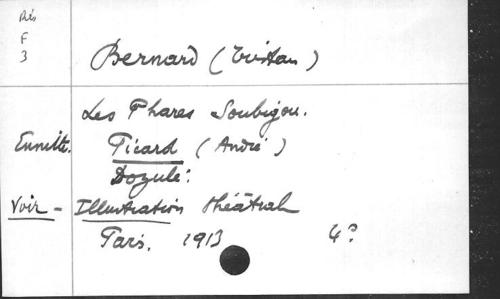 Rés
F
3
Bernard (Tristan)
Les Phares Soubigou.
Ensuite. Picard (André)
Dozulé.
Voir - Illustration théâtrale
Paris. 1913 4°